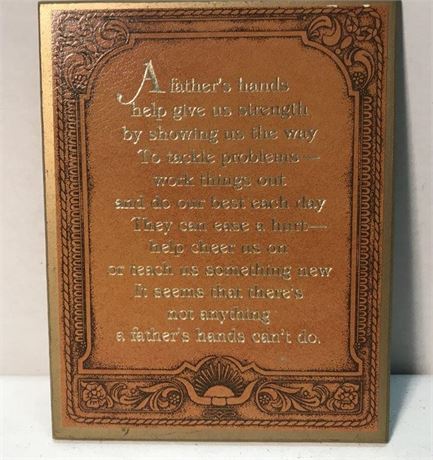 A father's hands
help give us strength
by showing us the way
To tackle problems—
work things out
and do our best each day
They can ease a hurt—
help cheer us on
or teach us something new
It seems that there's
not anything
a father's hands can't do.